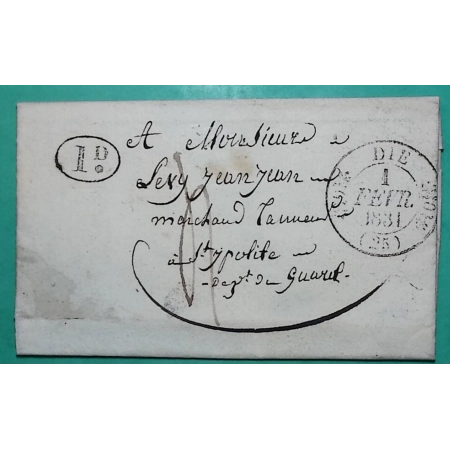 1 D.
A Monsieur
Levy jeanjean
marchand Tanneur
à St ypolite
dept. du Guard.
DIE
1
FEVR
1831
(25)